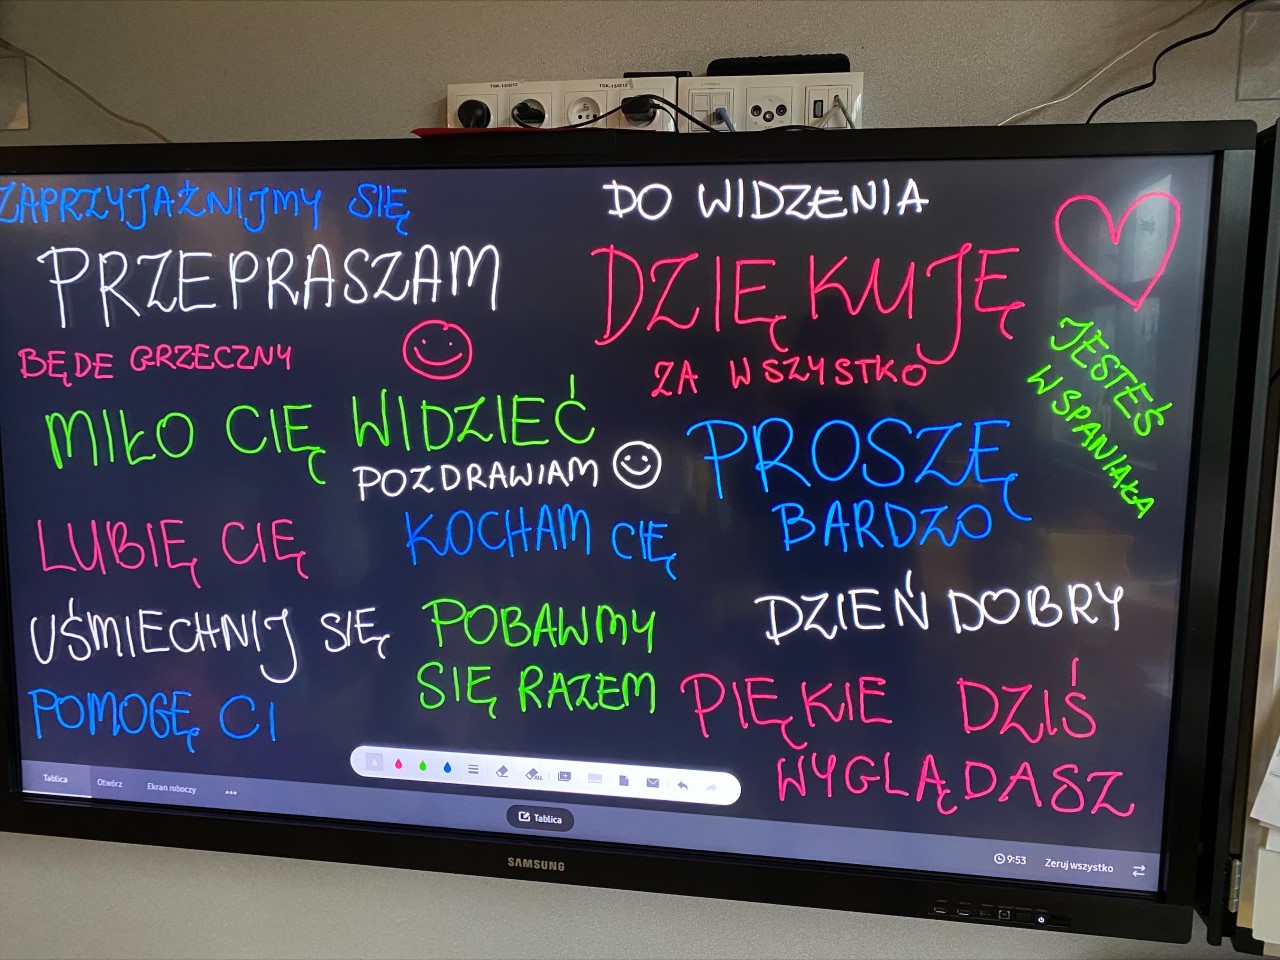 TSK-13/G12 TSK-13/G12
ZAPRZYJAŹNIJMY SIĘ
DO WIDZENIA
PRZEPRASZAM
DZIĘKUJĘ
BĘDE GRZECZNY
ZA WSZYSTKO
JESTEŚ
WSPANIAŁA
MIŁO CIĘ WIDZIEĆ
POZDRAWIAM
PROSZĘ
BARDZO
LUBIĘ CIĘ
KOCHAM CIĘ
UŚMIECHNIJ SIĘ
POBAWMY
SIĘ RAZEM
DZIEŃ DOBRY
POMOGĘ CI
PIĘKIE DZIŚ
WYGLĄDASZ
Tablica Otwórz Ekran roboczy
ALL
Tablica
9:53 Zeruj wszystko
SAMSUNG